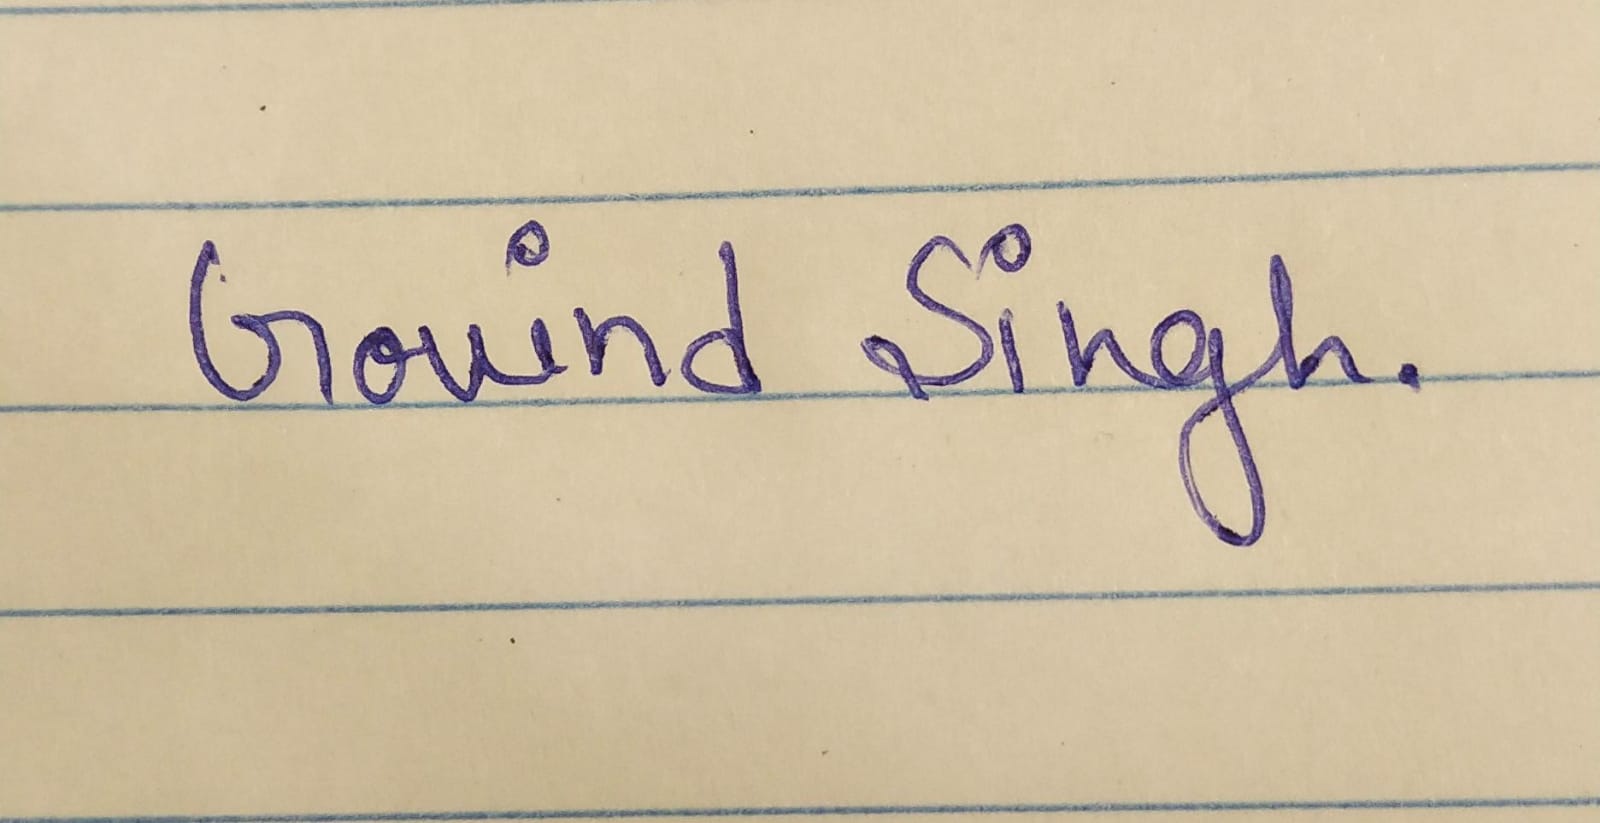 Govind Singh.